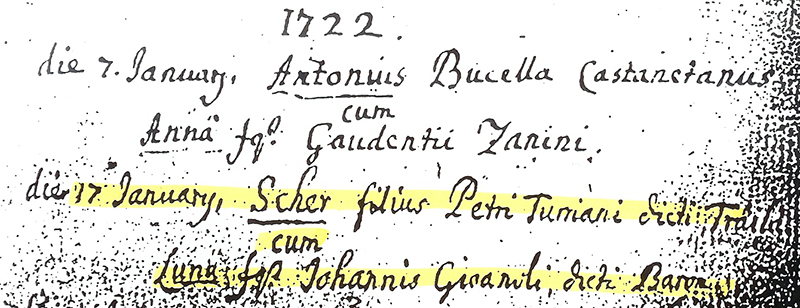 1722.
die 7. January, Antonius Bucella Castanetanus
cum
Anna fq. Gaudentii Zanini.
die 17 January, Scher filius Petri Turriani dicti
cum
Luna fq. Johannis Gicanoli, dicti Baron